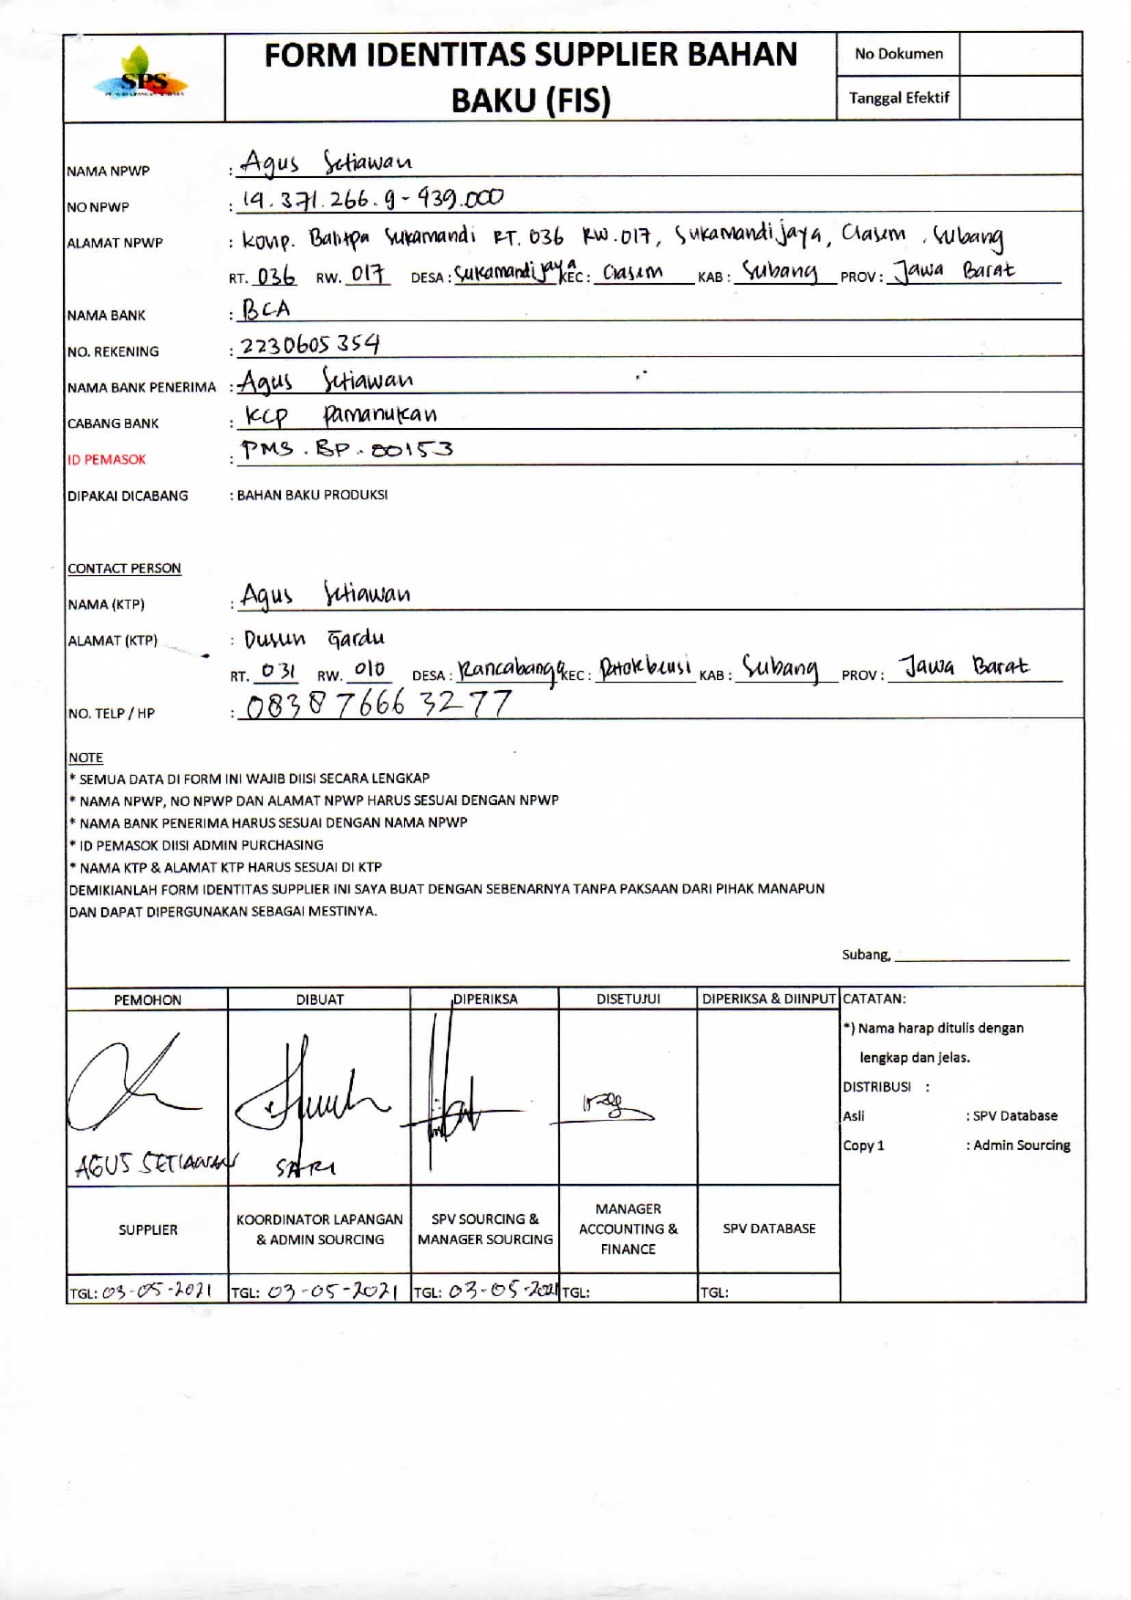 SPS
FORM IDENTITAS SUPPLIER BAHAN
BAKU (FIS)
No Dokumen
Tanggal Efektif
NAMA NPWP : Agus Setiawan
NO NPWP : 14.371.266.9-439.000
ALAMAT NPWP : Komp. Balitpa Sukamandi RT. 036 RW. 017, Sukamandijaya, Ciasem, Subang
RT. 036 RW. 017 DESA : Sukamandijaya KEC : Ciasem KAB : Subang PROV : Jawa Barat
NAMA BANK : BCA
NO. REKENING : 2230605354
NAMA BANK PENERIMA : Agus Setiawan
CABANG BANK : KCP Pamanukan
ID PEMASOK : PMS.BP.00153
DIPAKAI DICABANG : BAHAN BAKU PRODUKSI
CONTACT PERSON
NAMA (KTP) : Agus Setiawan
ALAMAT (KTP) : Dusun Gardu
RT. 031 RW. 010 DESA : Rancabango KEC : Patokbeusi KAB : Subang PROV : Jawa Barat
NO. TELP / HP : 083876663277
NOTE
* SEMUA DATA DI FORM INI WAJIB DIISI SECARA LENGKAP
* NAMA NPWP, NO NPWP DAN ALAMAT NPWP HARUS SESUAI DENGAN NPWP
* NAMA BANK PENERIMA HARUS SESUAI DENGAN NAMA NPWP
* ID PEMASOK DIISI ADMIN PURCHASING
* NAMA KTP & ALAMAT KTP HARUS SESUAI DI KTP
DEMIKIANLAH FORM IDENTITAS SUPPLIER INI SAYA BUAT DENGAN SEBENARNYA TANPA PAKSAAN DARI PIHAK MANAPUN
DAN DAPAT DIPERGUNAKAN SEBAGAI MESTINYA.
Subang,
PEMOHON DIBUAT DIPERIKSA DISETUJUI DIPERIKSA & DIINPUT CATATAN:
*) Nama harap ditulis dengan
lengkap dan jelas.
DISTRIBUSI :
Asli : SPV Database
Copy 1 : Admin Sourcing
AGUS SETIAWAN SARI
SUPPLIER
KOORDINATOR LAPANGAN
& ADMIN SOURCING
SPV SOURCING &
MANAGER SOURCING
MANAGER
ACCOUNTING &
FINANCE
SPV DATABASE
TGL: 03-05-2021 TGL: 03-05-2021 TGL: 03-05-2021 TGL: TGL: